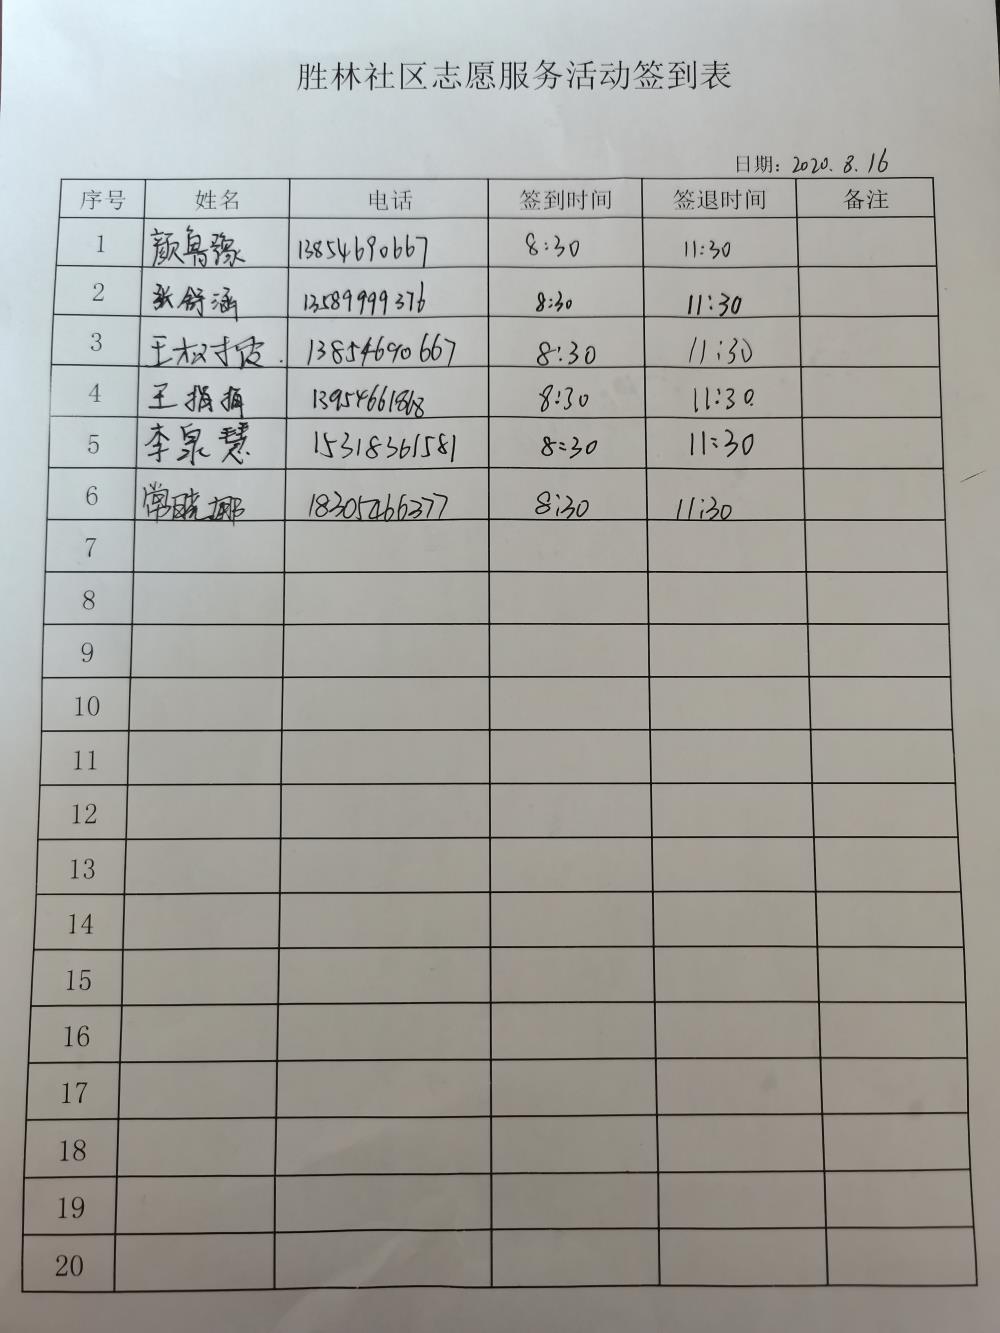 胜林社区志愿服务活动签到表
日期: 2020.8.16
序号 姓名 电话 签到时间 签退时间 备注
1 颜鲁豫 13854690667 8:30 11:30
2 张舒涵 13589999376 8:30 11:30
3 13854690667 8:30 11:30
4 王娟娟 13954661868 8:30 11:30
5 李泉慧 15318361581 8:30 11:30
6 常晓娜 18305466377 8:30 11:30
7
8
9
10
11
12
13
14
15
16
17
18
19
20